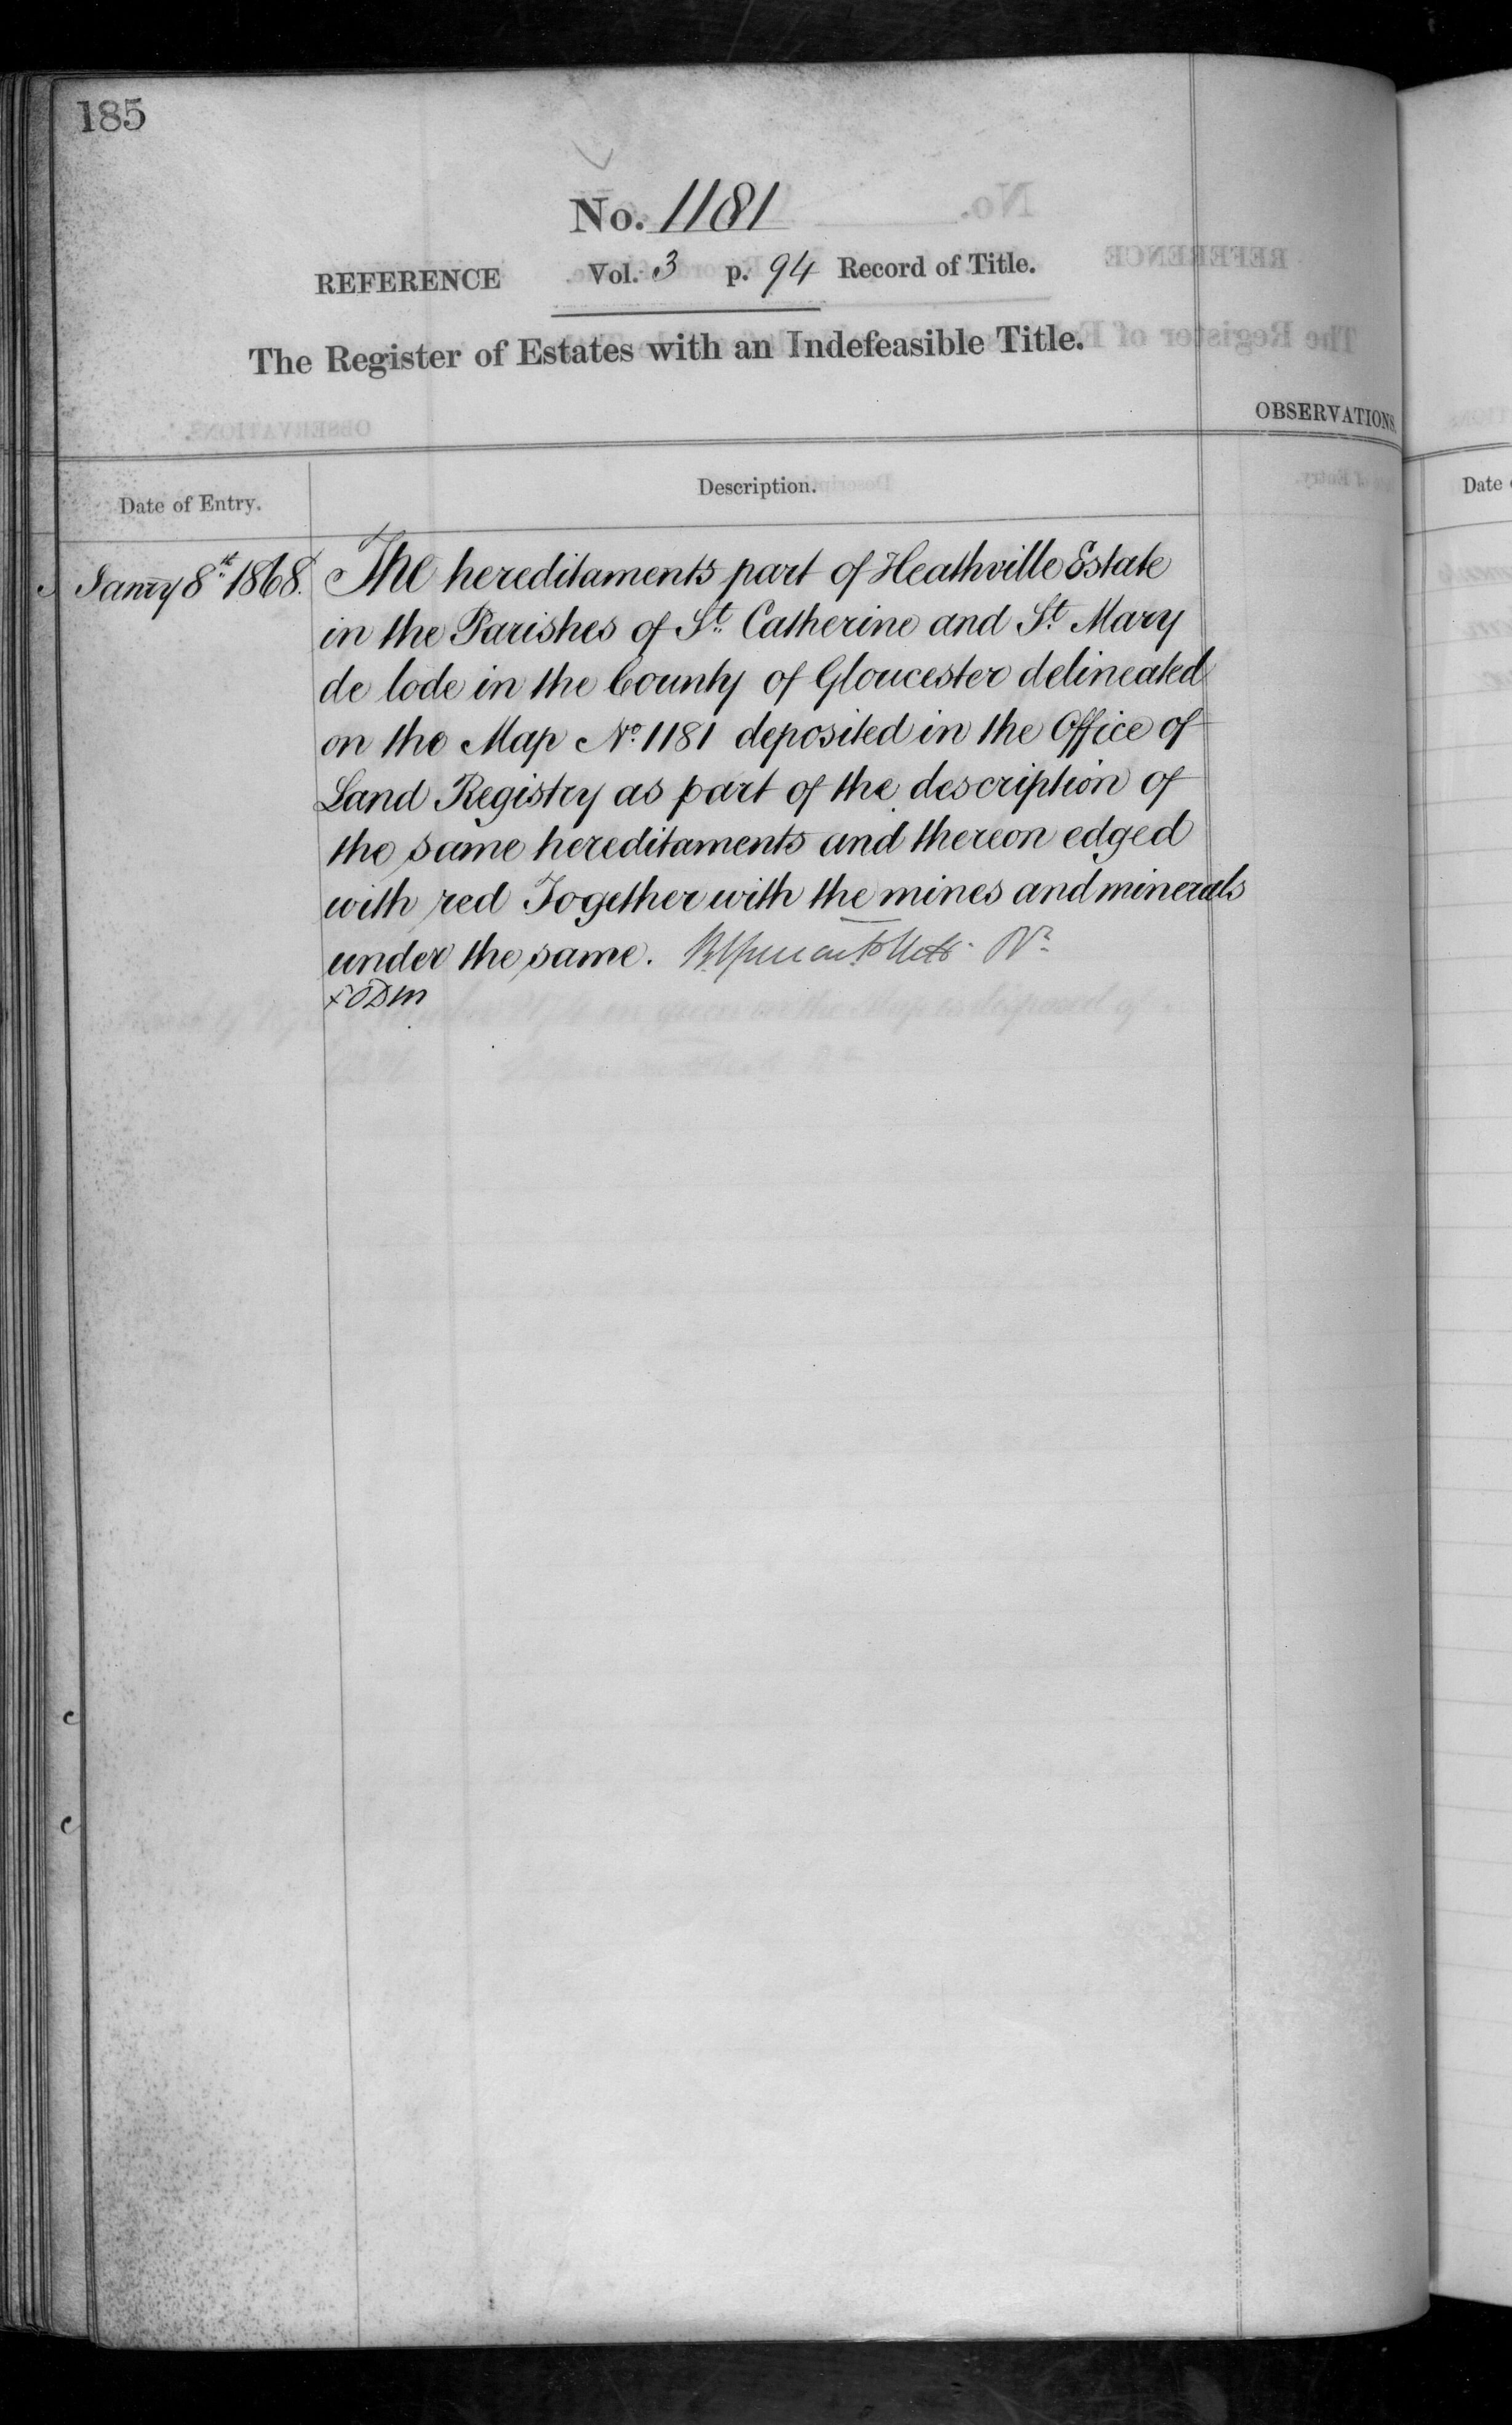 185
No. 1181
REFERENCE Vol. 3 p. 94 Record of Title.
The Register of Estates with an Indefeasible Title.
OBSERVATIONS.
Date of Entry. Description.
Janry 8th 1868. The hereditaments part of Heathville Estate
in the Parishes of St. Catherine and St. Mary
de lode in the County of Gloucester delineated
on the Map No. 1181 deposited in the Office of
Land Registry as part of the description of
the same hereditaments and thereon edged
with red Together with the mines and minerals
under the same.
Date